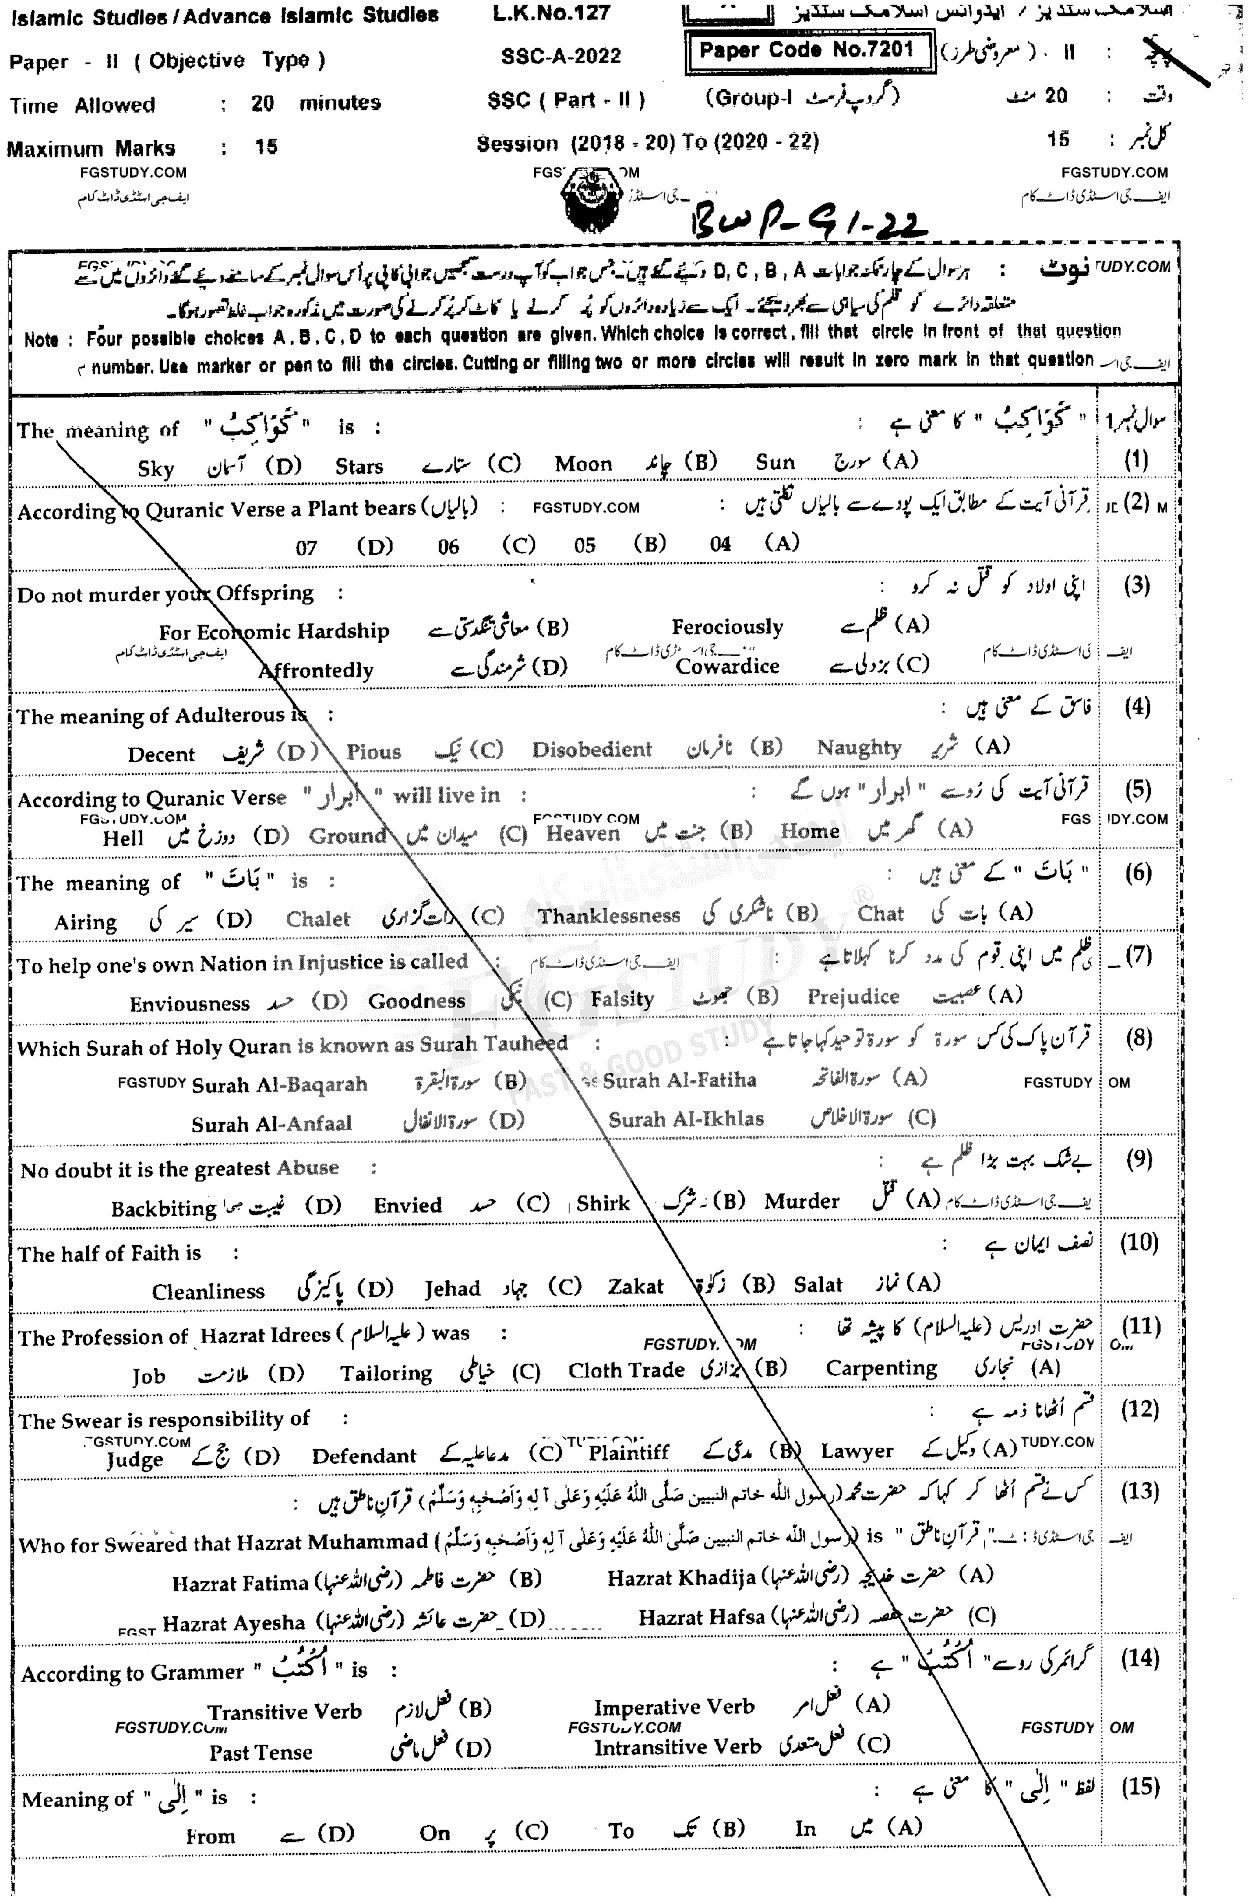 Islamic Studies/Advance Islamic Studies L.K.No.127 اسلامک سٹڈیز / ایڈوانس اسلامک سٹڈیز
Paper - II ( Objective Type ) SSC-A-2022 Paper Code No.7201 پرچہ : II - ( معروضی طرز )
Time Allowed : 20 minutes SSC ( Part - II ) (Group-I گروپ فرسٹ) وقت : 20 منٹ
Maximum Marks : 15 Session (2018 - 20) To (2020 - 22) کل نمبر : 15
FGSTUDY.COM FGS OM FGSTUDY.COM
ایف جی اسٹڈی ڈاٹ کام جی اسٹڈی ایف جی اسٹڈی ڈاٹ کام
BWP-G1-22
نوٹ : ہر سوال کے چار ممکنہ جوابات D, C, B, A دیئے گئے ہیں۔ جس جواب کو آپ درست سمجھیں جوابی کاپی پر اُس سوال نمبر کے سامنے دیئے گئے دائروں میں سے
متعلقہ دائرے کو قلم کی سیاہی سے بھر دیجئے۔ ایک سے زیادہ دائروں کو پُر کرنے یا کاٹ کر پُر کرنے کی صورت میں مذکورہ جواب غلط تصور ہوگا۔
Note : Four possible choices A, B, C, D to each question are given. Which choice is correct, fill that circle in front of that question
number. Use marker or pen to fill the circles. Cutting or filling two or more circles will result in zero mark in that question
The meaning of " كَوَاكِبُ " is : " كَوَاكِبُ " کا معنی ہے : سوال نمبر 1
Sky آسمان (D) Stars ستارے (C) Moon چاند (B) Sun سورج (A) (1)
According to Quranic Verse a Plant bears (بالیاں) : FGSTUDY.COM قرآنی آیت کے مطابق ایک پودے سے بالیاں نکلتی ہیں : (2)
07 (D) 06 (C) 05 (B) 04 (A)
Do not murder your Offspring : اپنی اولاد کو قتل نہ کرو : (3)
For Economic Hardship معاشی تنگدستی سے (B) Ferociously ظلم سے (A)
ایف جی اسٹڈی ڈاٹ کام
Affrontedly شرمندگی سے (D) Cowardice بزدلی سے (C)
The meaning of Adulterous is : فاسق کے معنی ہیں : (4)
Decent شریف (D) Pious نیک (C) Disobedient نافرمان (B) Naughty شریر (A)
According to Quranic Verse " ابرار " will live in : قرآنی آیت کی رُو سے " ابرار " ہوں گے : (5)
FGSTUDY.COM FGSTUDY.COM FGS UDY.COM
Hell دوزخ میں (D) Ground میدان میں (C) Heaven جنت میں (B) Home گھر میں (A)
The meaning of " بَاتَ " is : " بَاتَ " کے معنی ہیں : (6)
Airing سیر کی (D) Chalet رات گزاری (C) Thanklessness ناشکری کی (B) Chat بات کی (A)
To help one's own Nation in Injustice is called : ایف جی اسٹڈی ڈاٹ کام ظلم میں اپنی قوم کی مدد کرنا کہلاتا ہے : (7)
Enviousness حسد (D) Goodness نیکی (C) Falsity جھوٹ (B) Prejudice عصبیت (A)
FGSTUDY®
FAST & GOOD STUDY
Which Surah of Holy Quran is known as Surah Tauheed : قرآن پاک کی کس سورۃ کو سورۃ توحید کہا جاتا ہے : (8)
FGSTUDY Surah Al-Baqarah سورۃ البقرۃ (B) Surah Al-Fatiha سورۃ الفاتحہ (A) FGSTUDY OM
Surah Al-Anfaal سورۃ الانفال (D) Surah Al-Ikhlas سورۃ الاخلاص (C)
No doubt it is the greatest Abuse : بے شک بہت بڑا ظلم ہے : (9)
Backbiting غیبت (D) Envied حسد (C) Shirk شرک (B) Murder قتل (A) ایف جی اسٹڈی ڈاٹ کام
The half of Faith is : نصف ایمان ہے : (10)
Cleanliness پاکیزگی (D) Jehad جہاد (C) Zakat زکوٰۃ (B) Salat نماز (A)
The Profession of Hazrat Idrees (علیہ السلام) was : حضرت ادریس (علیہ السلام) کا پیشہ تھا : (11)
FGSTUDY. OM FGSTUDY OM
Job ملازمت (D) Tailoring خیاطی (C) Cloth Trade بزازی (B) Carpenting نجاری (A)
The Swear is responsibility of : قسم اُٹھانا ذمہ ہے : (12)
FGSTUDY.COM TUDY.COM TUDY.COM
Judge جج کے (D) Defendant مدعا علیہ کے (C) Plaintiff مدعی کے (B) Lawyer وکیل کے (A)
کس نے قسم اُٹھا کر کہا کہ حضرت محمد (رسول اللہ خاتم النبیین صَلَّی اللہُ عَلَیْہِ وَعَلٰی آلِہٖ وَاَصْحٰبِہٖ وَسَلَّمَ) قرآنِ ناطق ہیں : (13)
Who for Sweared that Hazrat Muhammad (رسول اللہ خاتم النبیین صَلَّی اللہُ عَلَیْہِ وَعَلٰی آلِہٖ وَاَصْحٰبِہٖ وَسَلَّمَ) is " قرآنِ ناطق "
Hazrat Fatima (رضی اللہ عنہا) حضرت فاطمہ (B) Hazrat Khadija (رضی اللہ عنہا) حضرت خدیجہ (A)
FGST Hazrat Ayesha (رضی اللہ عنہا) حضرت عائشہ (D) Hazrat Hafsa (رضی اللہ عنہا) حضرت حفصہ (C)
According to Grammer " اُكْتُبْ " is : گرائمر کی رو سے " اُكْتُبْ " ہے : (14)
Transitive Verb فعل لازم (B) Imperative Verb فعل امر (A)
FGSTUDY.COM FGSTUDY.COM FGSTUDY OM
Past Tense فعل ماضی (D) Intransitive Verb فعل متعدی (C)
Meaning of " اِلٰی " is : لفظ " اِلٰی " کا معنی ہے : (15)
From سے (D) On پر (C) To تک (B) In میں (A)